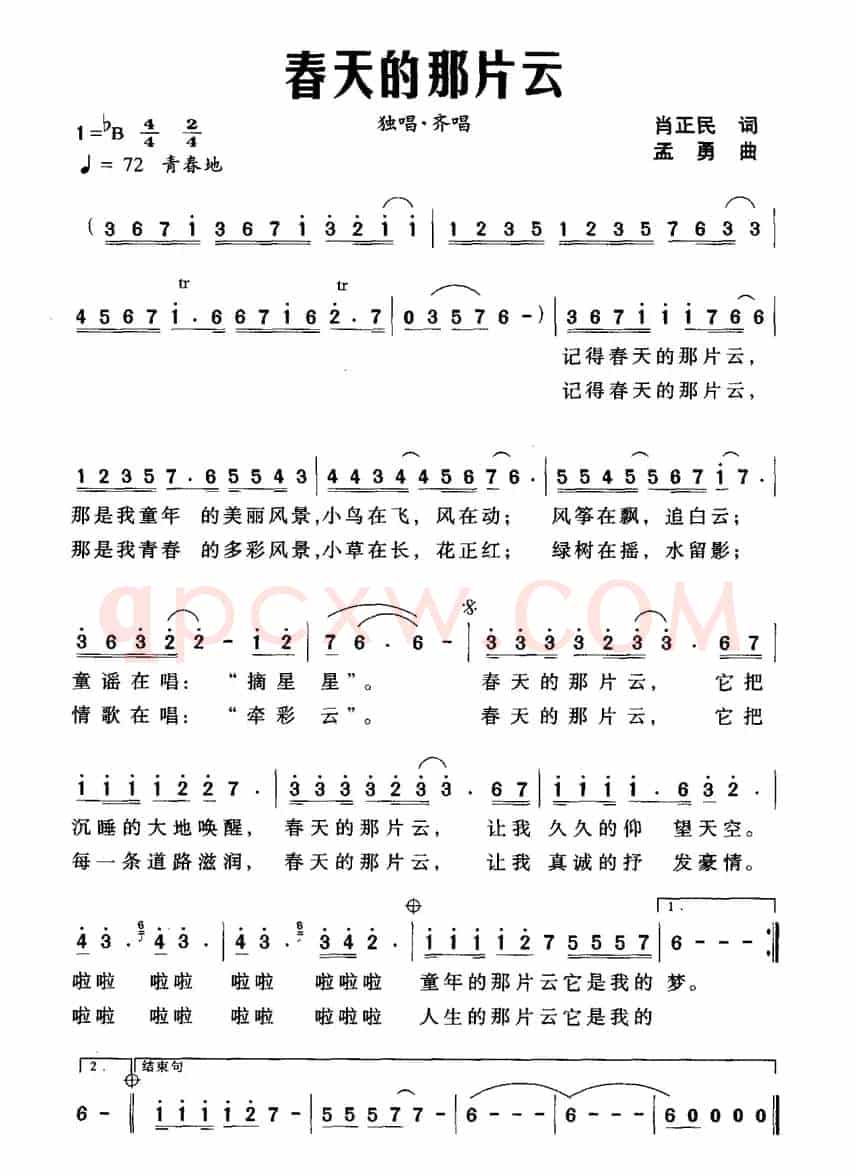 春天的那片云
1=♭B 4/4 2/4
独唱·齐唱
肖正民 词
♩= 72 青春地
孟 勇 曲
( 3 6 7 1 3 6 7 1 3 2 1 1 | 1 2 3 5 1 2 3 5 7 6 3 3 |
tr tr
4 5 6 7 1 . 6 6 7 1 6 2 . 7 | 0 3 5 7 6 - ) | 3 6 7 1 1 1 7 6 6
记得春天的那片云，
记得春天的那片云，
1 2 3 5 7 . 6 5 5 4 3 | 4 4 3 4 4 4 5 6 7 6 . | 5 5 4 5 5 5 6 7 1 7 . |
那是我童年 的美丽风景,小鸟在飞，风在动； 风筝在飘，追白云；
那是我青春 的多彩风景,小草在长，花正红； 绿树在摇，水留影；
qpcxw.COM
3 6 3 2 2 - 1 2 | 7 6 . 6 - | 3 3 3 3 3 2 3 3 . 6 7
童谣在唱：“摘星 星”。 春天的那片云， 它把
情歌在唱：“牵彩 云”。 春天的那片云， 它把
1 1 1 1 2 2 7 . | 3 3 3 3 3 2 3 3 . 6 7 | 1 1 1 1 . 6 3 2 . |
沉睡的大地唤醒， 春天的那片云， 让我 久久的仰 望天空。
每一条道路滋润， 春天的那片云， 让我 真诚的抒 发豪情。
1 .
4 3 . 6 4 3 . 6 4 3 . 6 3 4 2 . | 1 1 1 1 2 7 5 5 5 7 | 6 - - - :||
啦啦 啦啦 啦啦 啦啦啦 童年的那片云它是我的 梦。
啦啦 啦啦 啦啦 啦啦啦 人生的那片云它是我的
2 . 结束句
6 - || 1 1 1 1 2 7 - | 5 5 5 7 7 - | 6 - 6 - | 6 0 0 0 0 ||